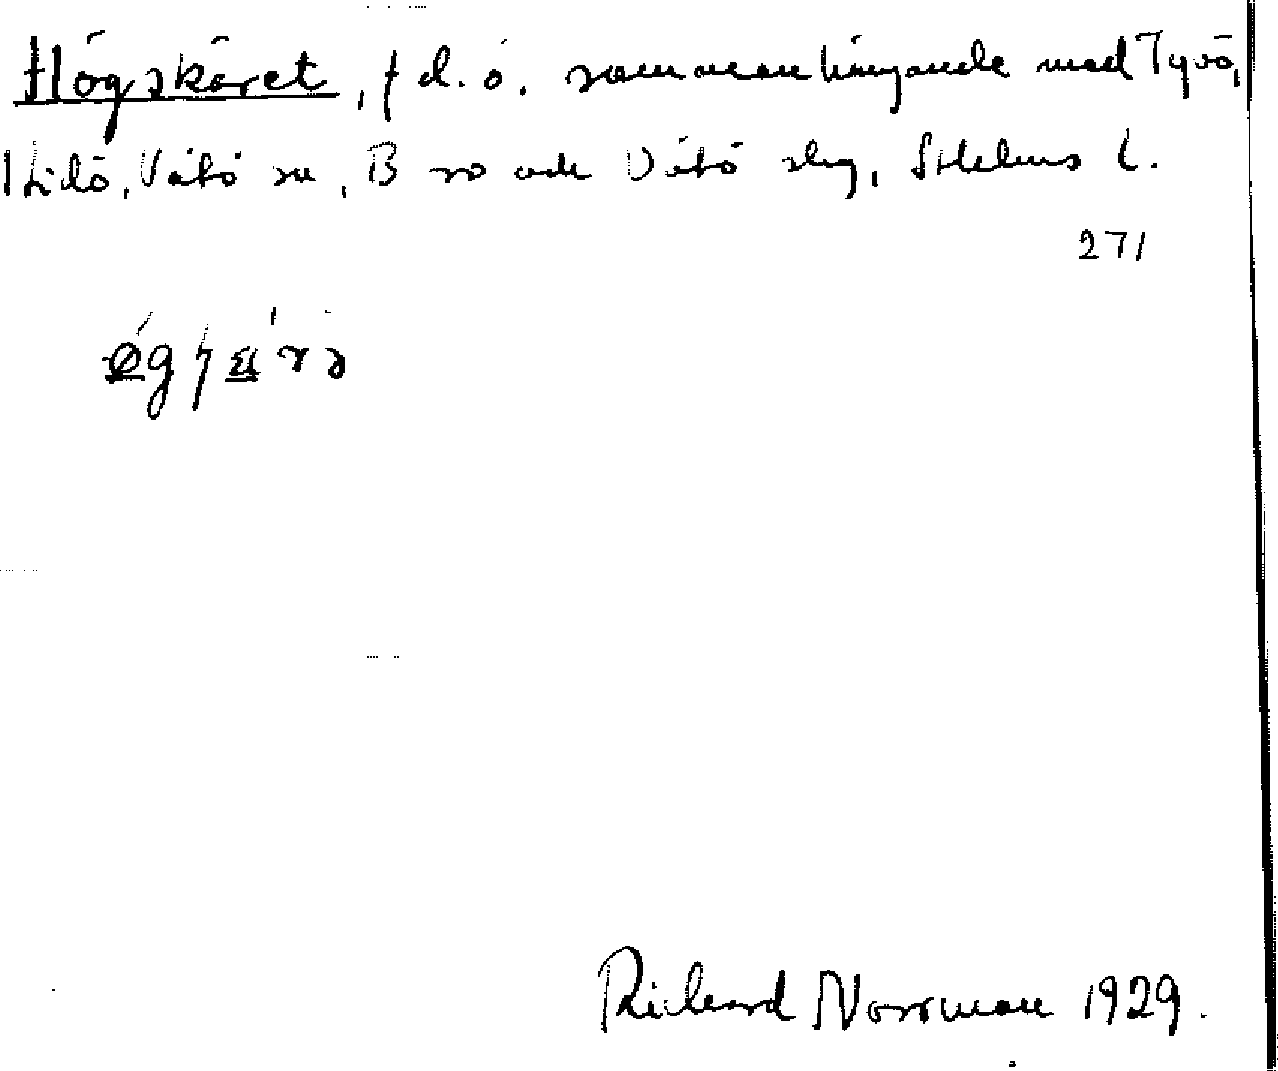 Högskäret, f d. ö. sammanhängande med Tyvö,
Lidö, Vätö sn, Bro och Vätö slg, Sthlms l.
271
Richard Norrman 1929.